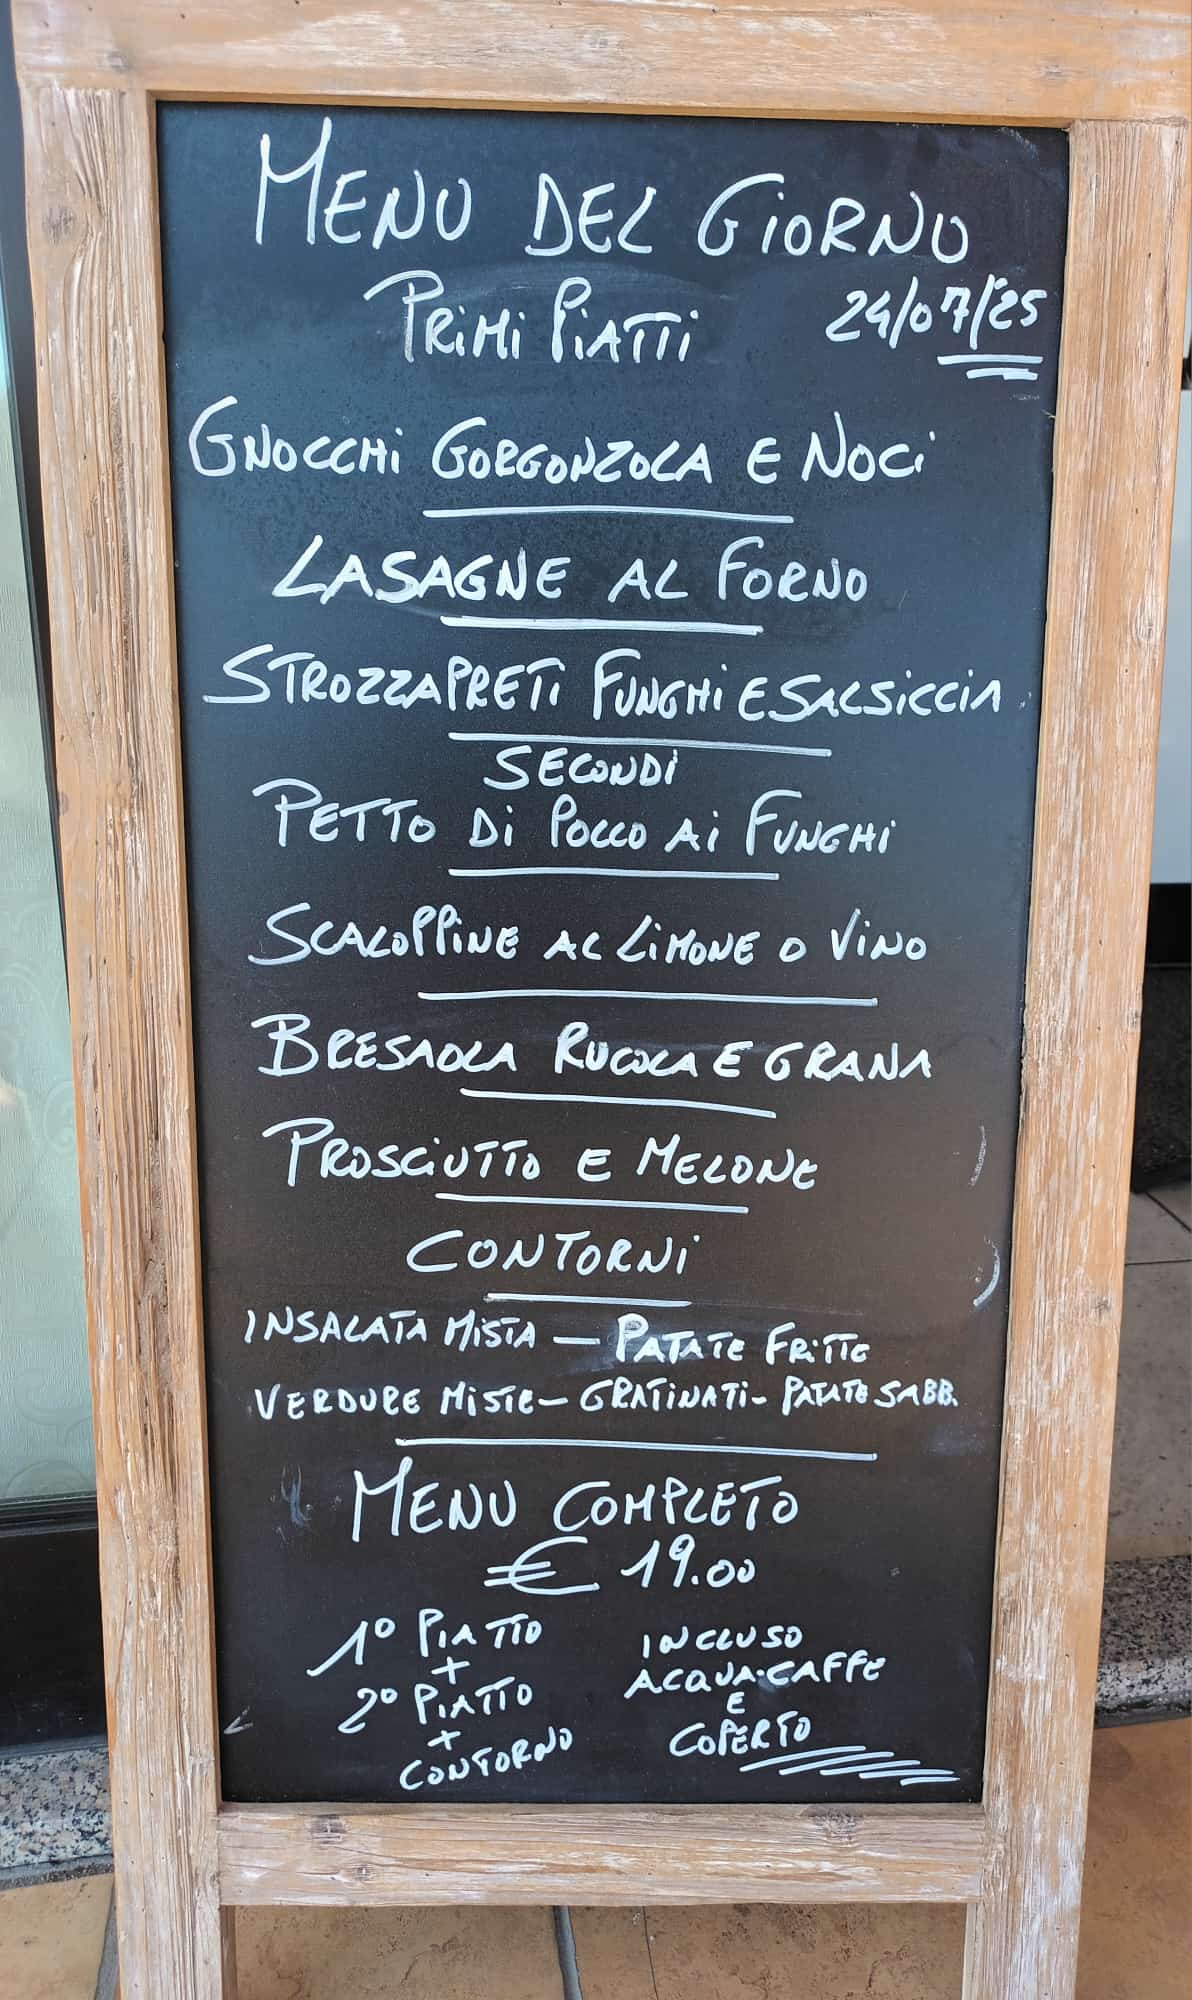 MENU DEL GIORNO
PRIMI PIATTI 24/07/25
GNOCCHI GORGONZOLA E NOCI
LASAGNE AL FORNO
STROZZAPRETI FUNGHI E SALSICCIA
SECONDI
PETTO DI POLLO AI FUNGHI
SCALOPPINE AL LIMONE O VINO
BRESAOLA RUCOLA E GRANA
PROSCIUTTO E MELONE
CONTORNI
INSALATA MISTA — PATATE FRITTE
VERDURE MISTE – GRATINATI – PATATE SABB.
MENU COMPLETO
€ 19.00
1° PIATTO
+
2° PIATTO
+
CONTORNO
INCLUSO
ACQUA-CAFFE
E
COPERTO